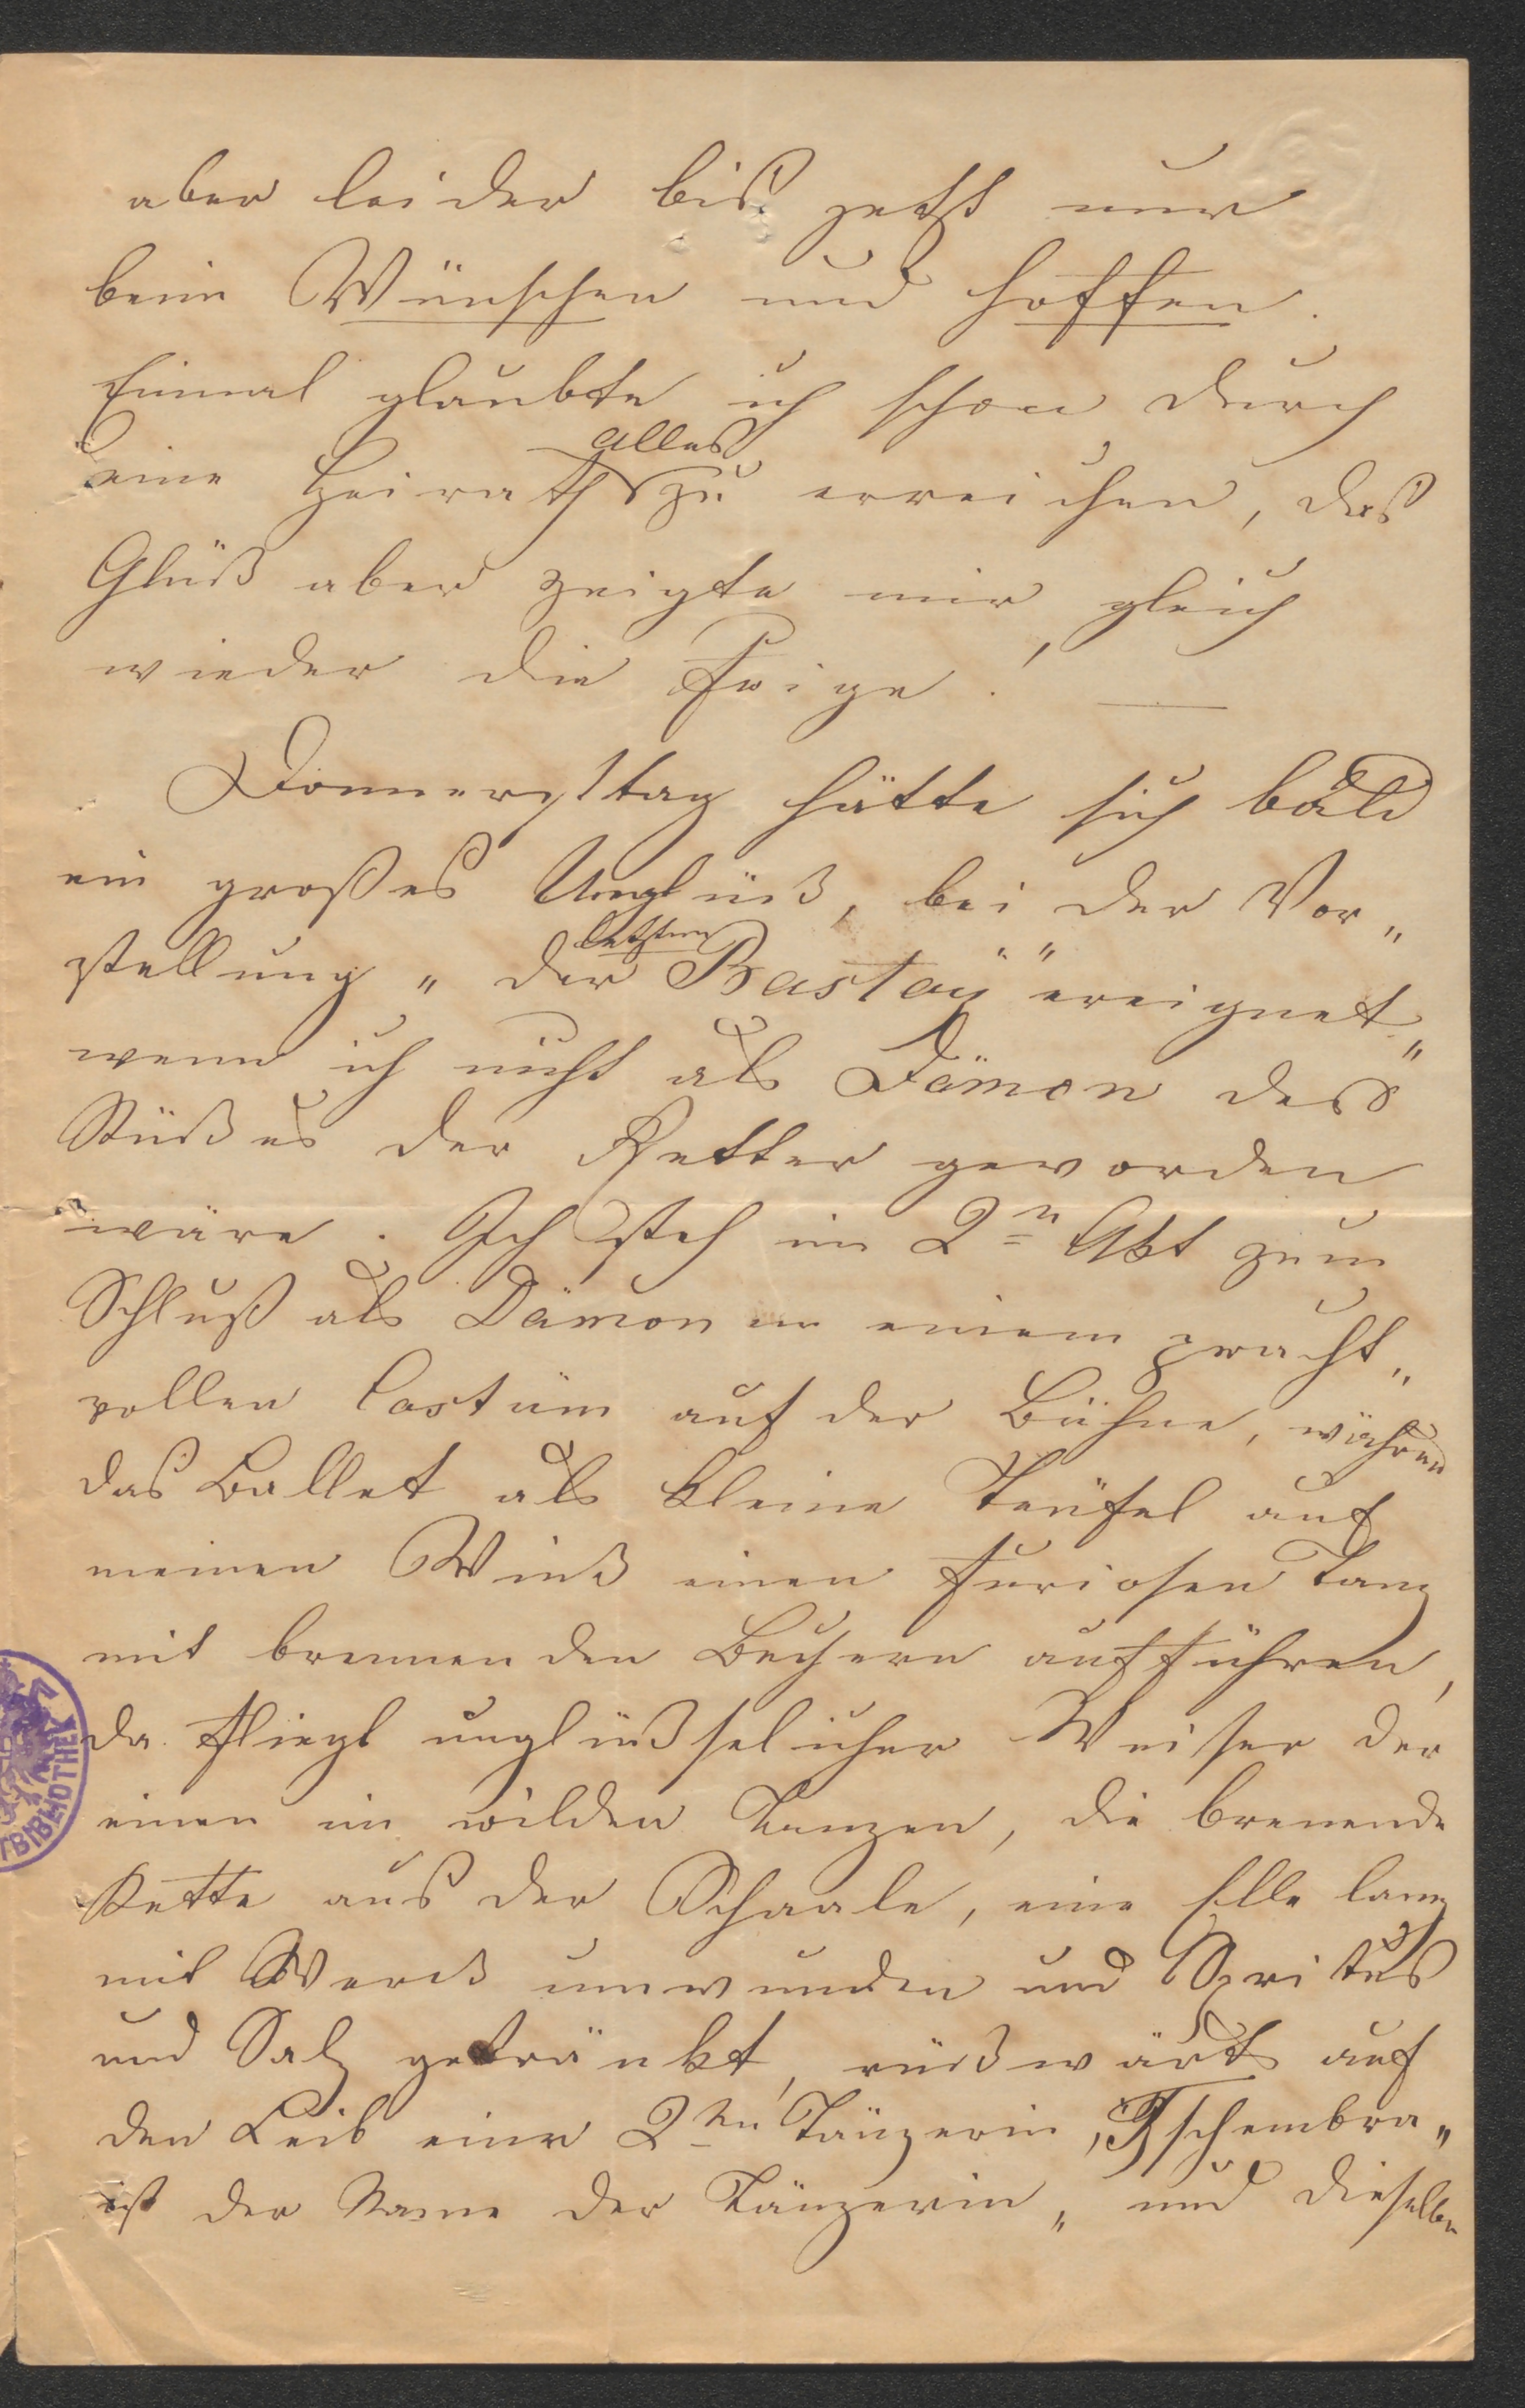 aber leider bis jetzt nur
beim Wünschen und hoffen.
Einmal glaubte ich schon durch
alles
eine Heirath zu erreichen, das
Glück aber zeigte mir gleich
wieder die Feige! —
Donnersttag hätte sich bald
ein großes Unglück, bei der Vor„
letzten
stellung „der Bastay" ereignet„
wenn ich nicht als Dämon des
Stückes der Retter geworden
wäre. Ich steh im 2n Akt zum
Schluß als Dämon in einem pracht„
vollen Costüm auf der Bühne, währen
das Ballet als kleine Teufel auf
meinen Wink einen furiosen Tanz
mit brennenden Bechern aufführen,
da fliegt unglückselicher Weiser der
einen im wilden Tanzen, die brenende
Kette aus der Schaale, eine Elle lang
mit Werck umwunden und Spritus
und Salz getränkt, rückwärts auf
den Leib einer 2ten Tänzerin, Tschembra„
ist der Name der Tänzerin„ und dieselbe
TBIBLIOTHEK